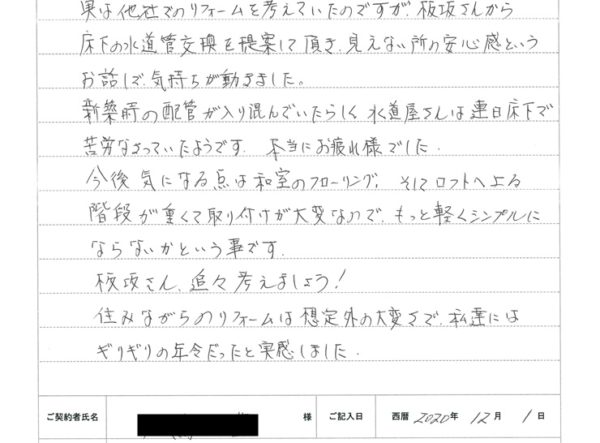 実は他社でのリフォームを考えていたのですが、板坂さんから
床下の水道管交換を提案して頂き、見えない所の安心感という
お話しで、気持ちが動きました。
新築時の配管が入り混んでいたらしく、水道屋さんは連日床下で
苦労なさっていたようです。本当にお疲れ様でした。
今後気になる点は和室のフローリング、そしてロフトへ上る
階段が重くて取り付けが大変なので、もっと軽くシンプルに
ならないかという事です。
板坂さん、追々考えましょう!
住みながらのリフォームは想定外の大変さで、私達には
ギリギリの年令だったと実感しました。
ご契約者氏名 様 ご記入日 西暦 2020年 12月 1日